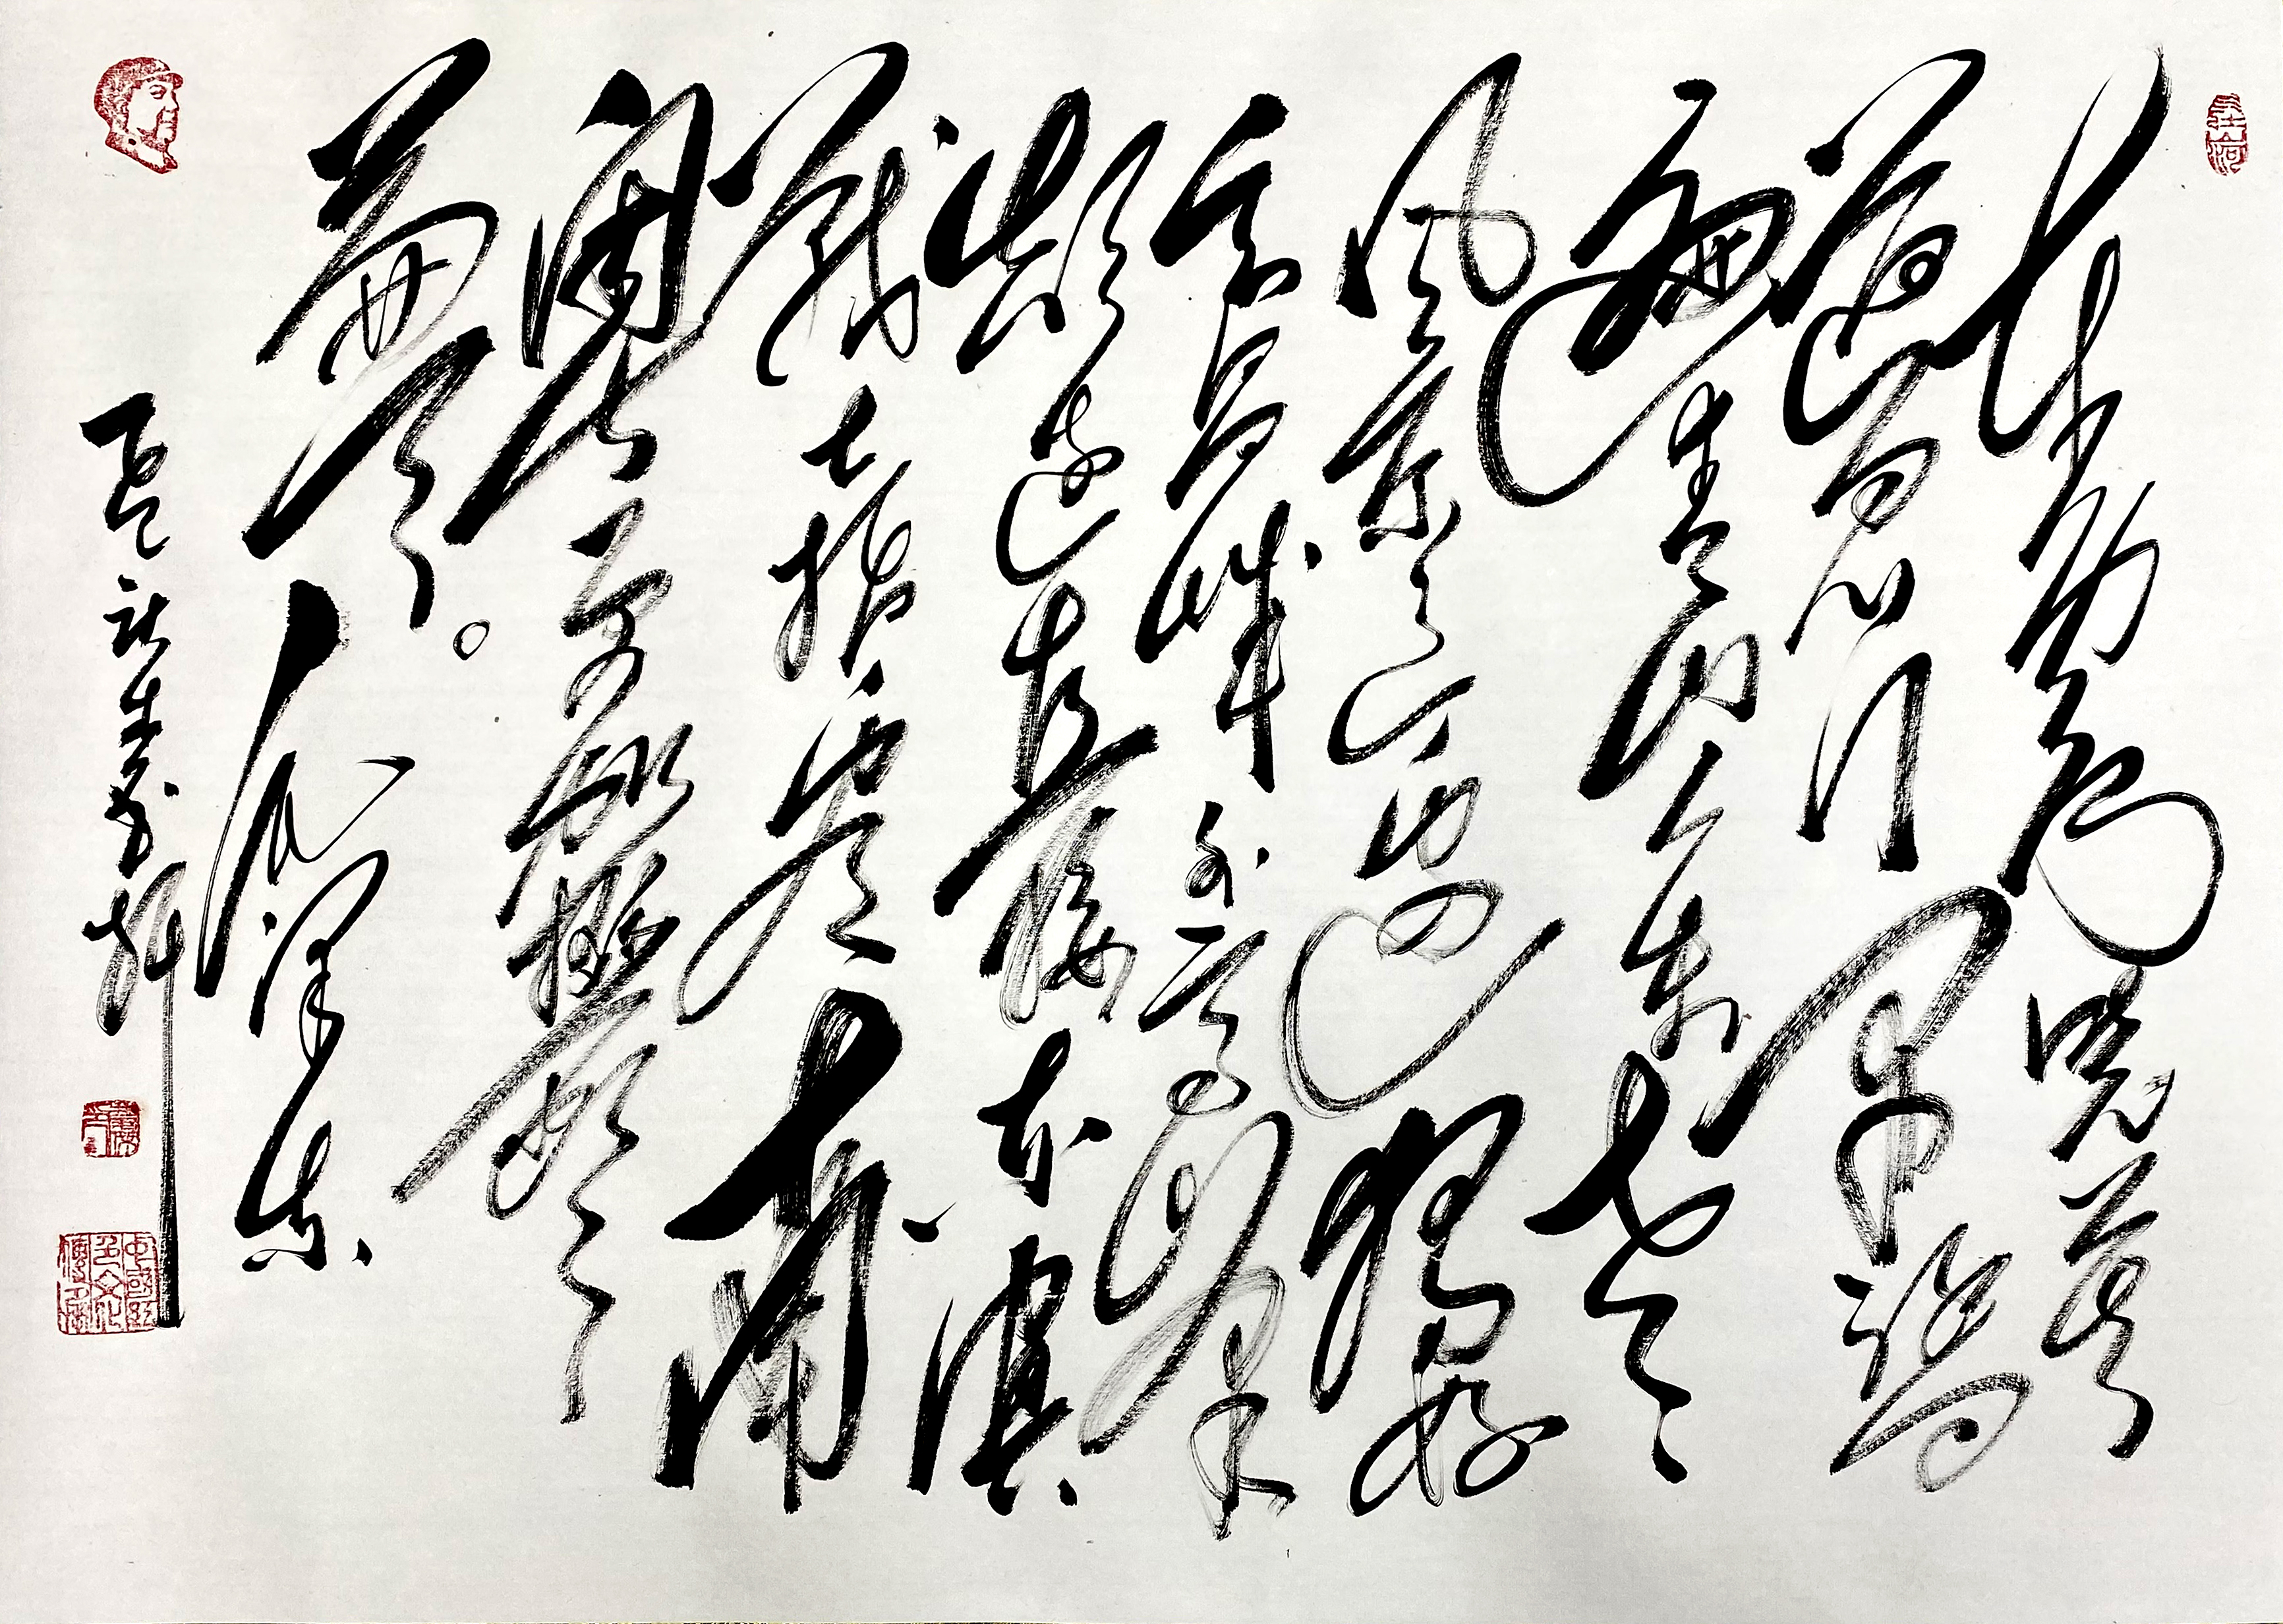 东方欲晓莫
道君行早踏
遍青山人未老
风景这边独好
会昌城外高峰
颠连直接东溟
战士指看南
粤更加郁郁葱
葱。毛泽东